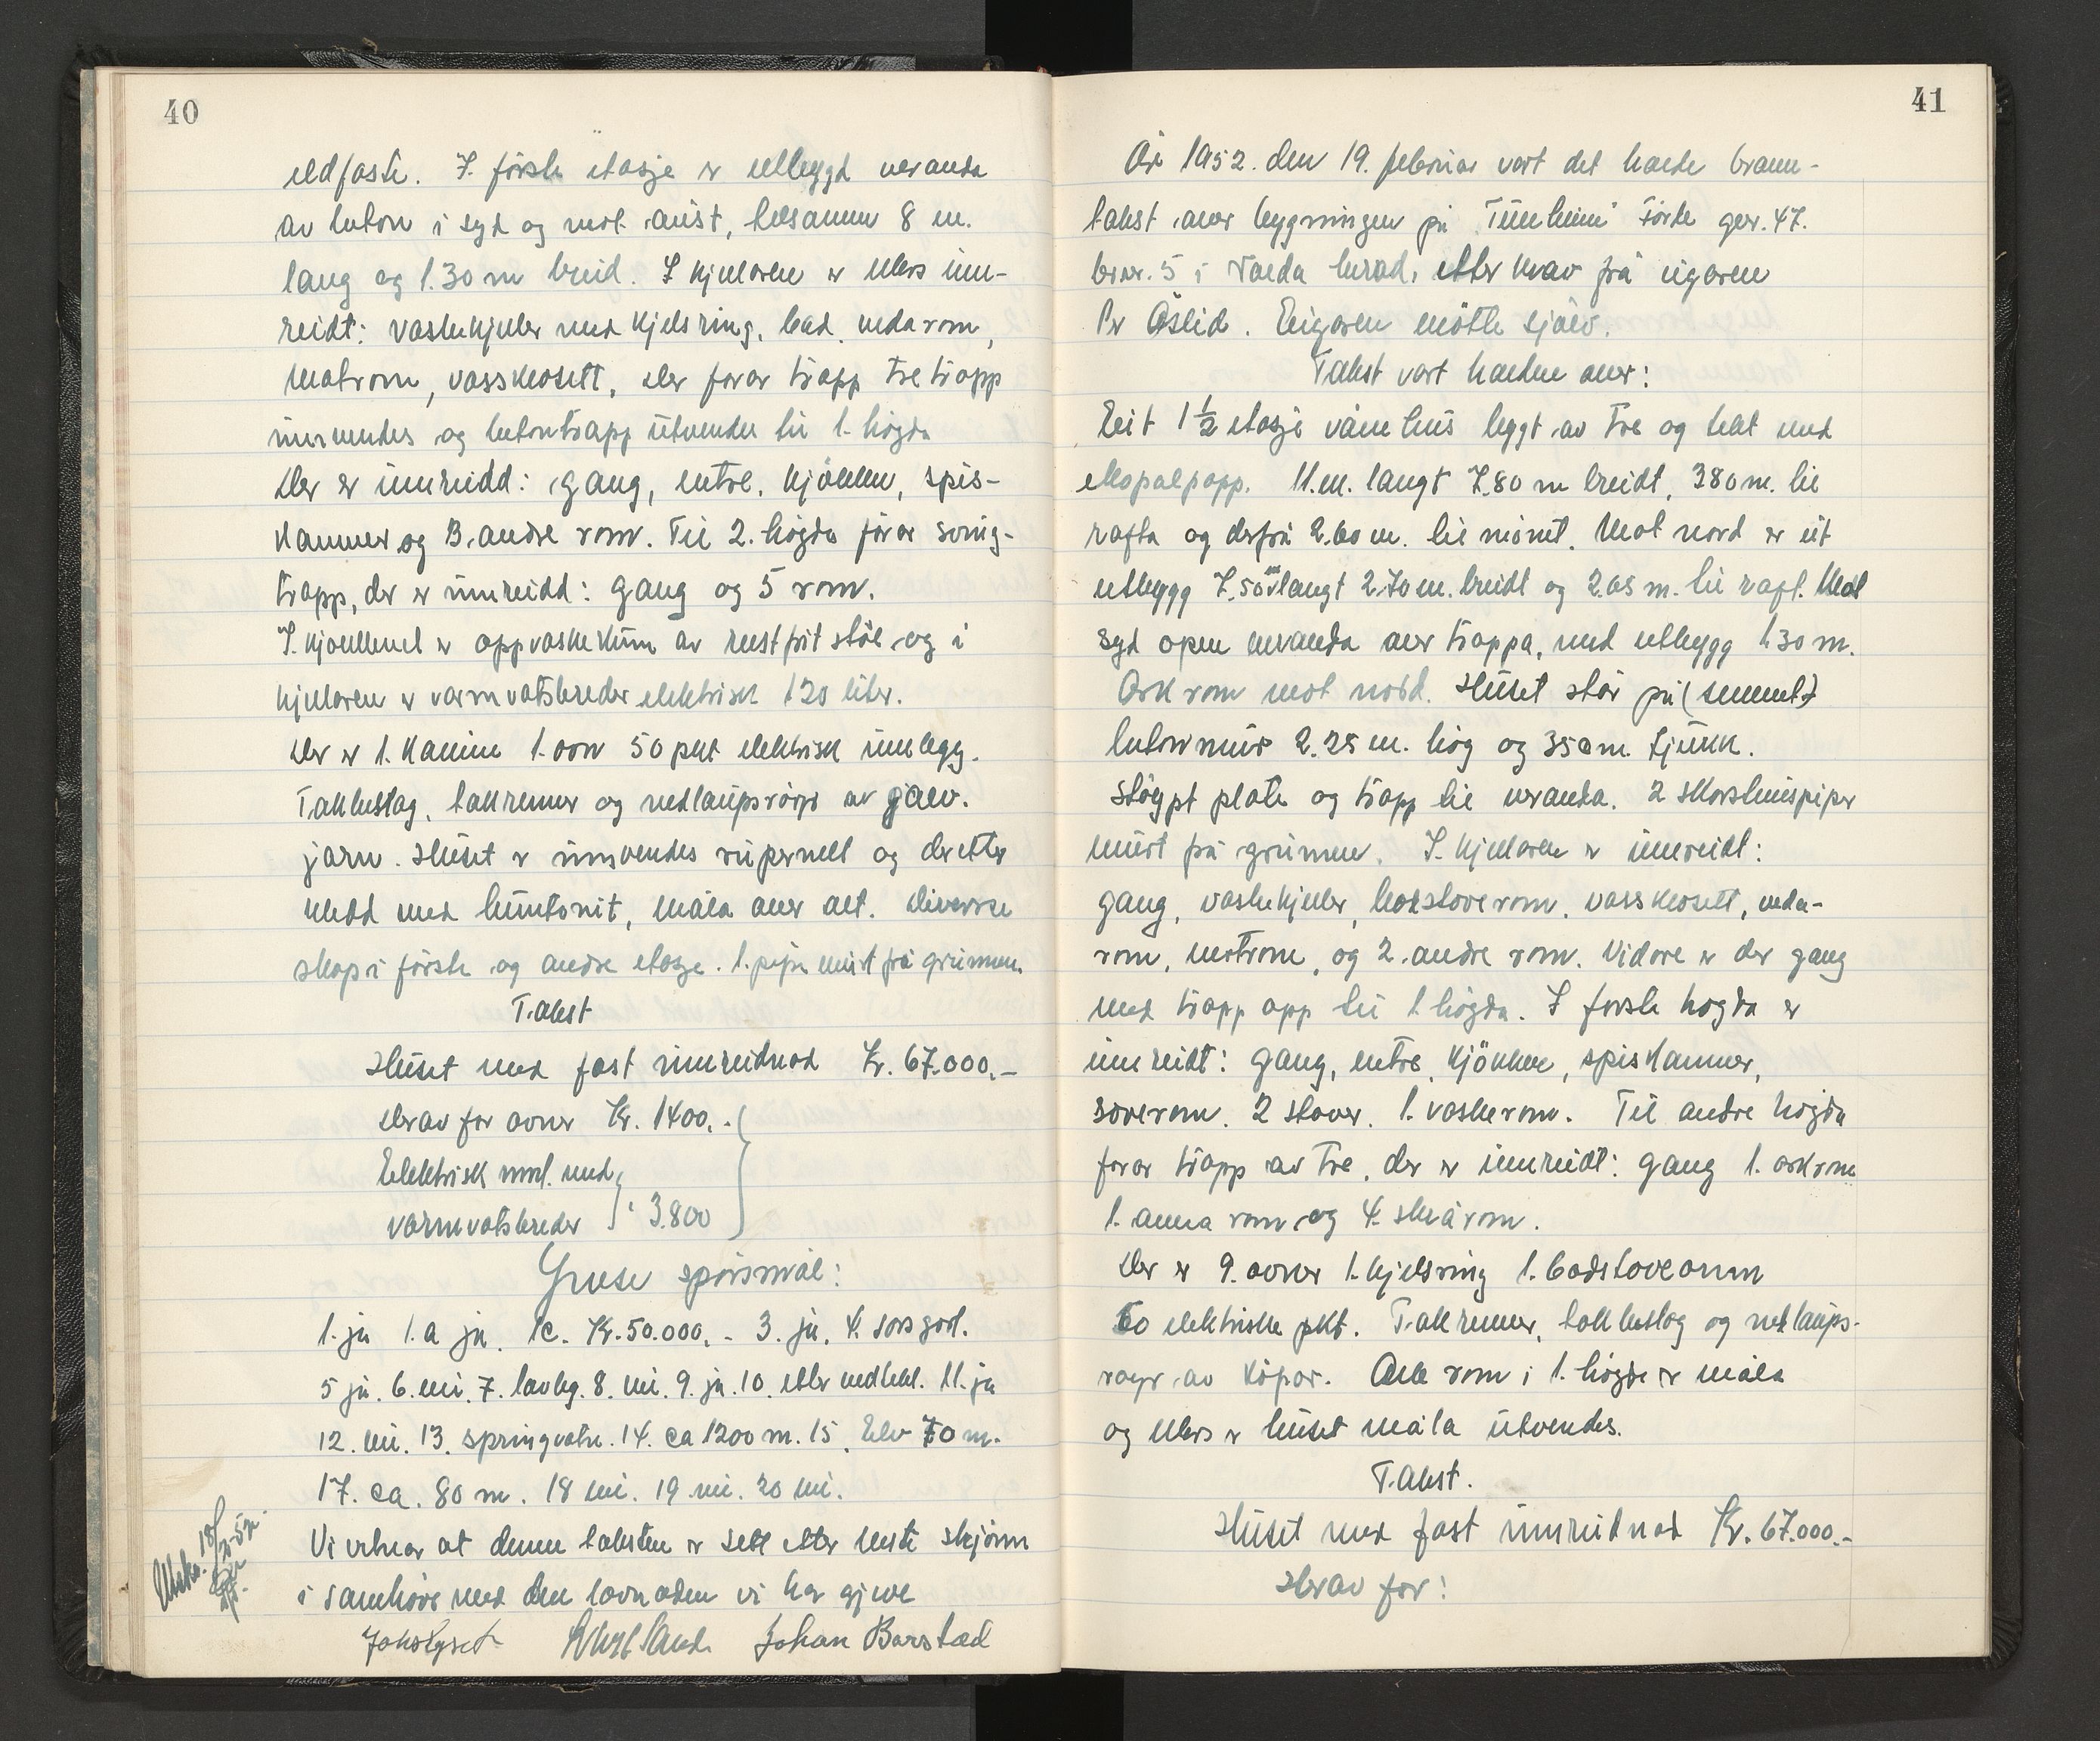 40
eldfaste. I første etasje er utbygd veranda
av betong i syd og mot aust, tilsamen 8 m.
lang og 1.30 m breid. I kjellaren er ellers inn-
reidt: vaskekjeller med kjelsring, bad, vedarom,
matrom, vassklosett, der førar trapp tre trapp
innvendes og betontrapp utvendes til 1. høgda
Der er innreidd: gang, entre, kjøkken, spis-
kammer og 3. andre rom. Til 2. høgda förar sving-
trapp, der er innreidd: gang og 5 rom.
I kjøkkenet er oppvaskekum av rustfrit stål og i
kjellaren er varmvatsbreder elektrisk 120 liter.
Der er 1. Kamin 1. oon 50 pkt elektrisk innlegg.
Takbeslag, takrenner og nedlaupsrøyr av galv.
jarn. Huset er innvendes rupernelt og deretter
kledd med huntonit, måla over alt. Diverse
skap i første og andre etasje. 1. pipe murt frå grunnen.
Takst
Huset med fast innreidnad Kr. 67.000.-
Derav for ovner Kr. 1400.-
Elektrisk innl. med
varmvatsbreder " 3.800
Ymse spørsmål:
1. ja 1.a ja. 1c. Kr. 50.000.- 3. ja. 4. sers god.
5 ja. 6. nei. 7. lavbg. 8. nei. 9. ja. 10. etter vedtekt. 11. ja
12. nei. 13. springvatn. 14. ca 1200 m. 15. Elv 70 m.
17. ca. 80 m. 18 nei. 19. nei. 20 nei.
Vi vitnar at denne taksten er sett etter beste skjønn
i samhøve med den lovnaden vi har gjeve
Johan Barstad
Utskr. 18/2-52
41
År 1952. den 19. februar vart det halde brann-
takst over bygningen på "Tunheim" Förde gnr. 47.
bnr. 5 i Volda herad, etter krav frå eigaren
Per Åslid. Eigaren møtte sjølv.
Takst vart halden over:
Eit 1 1/2 etasje våne hus bygt av tre og tekt med
ekkopalpapp. 11.m. langt 7.80 m breidt, 3.80 m. til
rafta og derfrå 2.60 m. til mönet. Mot nord er eit
utbygg 7.50 m langt 2.70 m. breidt og 2.65 m. til raft. Mot
syd open veranda over trappa, med utbygg 1.30 m.
Ark rom mot nord. Huset står på (sement)
betonmur 2.25 m. høg og 35 cm. tjukk.
Støypt plate og trapp til veranda. 2 skorsteinspiper
murt frå grunnen. I kjellaren er innreidt:
gang, vaskekjeller, badstoverom, vassklosett, veda-
rom, matrom, og 2. andre rom. Vidare er der gang
med trapp opp til 1. høgda. I første høgda er
innreidt: gang, entre, kjøkken, spiskammer,
soverom. 2 stover. 1. vaskerom. Til andre høgda
førar trapp av tre, der er innreidt: gang 1. arkrom
1. anna rom og 4. skrårom.
Der er 9. ovner 1. kjelsring 1. badstoveomn
60 elektriske pkt. Takrenner, takbeslag og nedlaups-
røyr av kopar. Alle rom i 1. høgda er måla
og ellers er huset måla utvendes.
Takst.
Huset med fast innreidnad Kr. 67.000.-
Herav for: